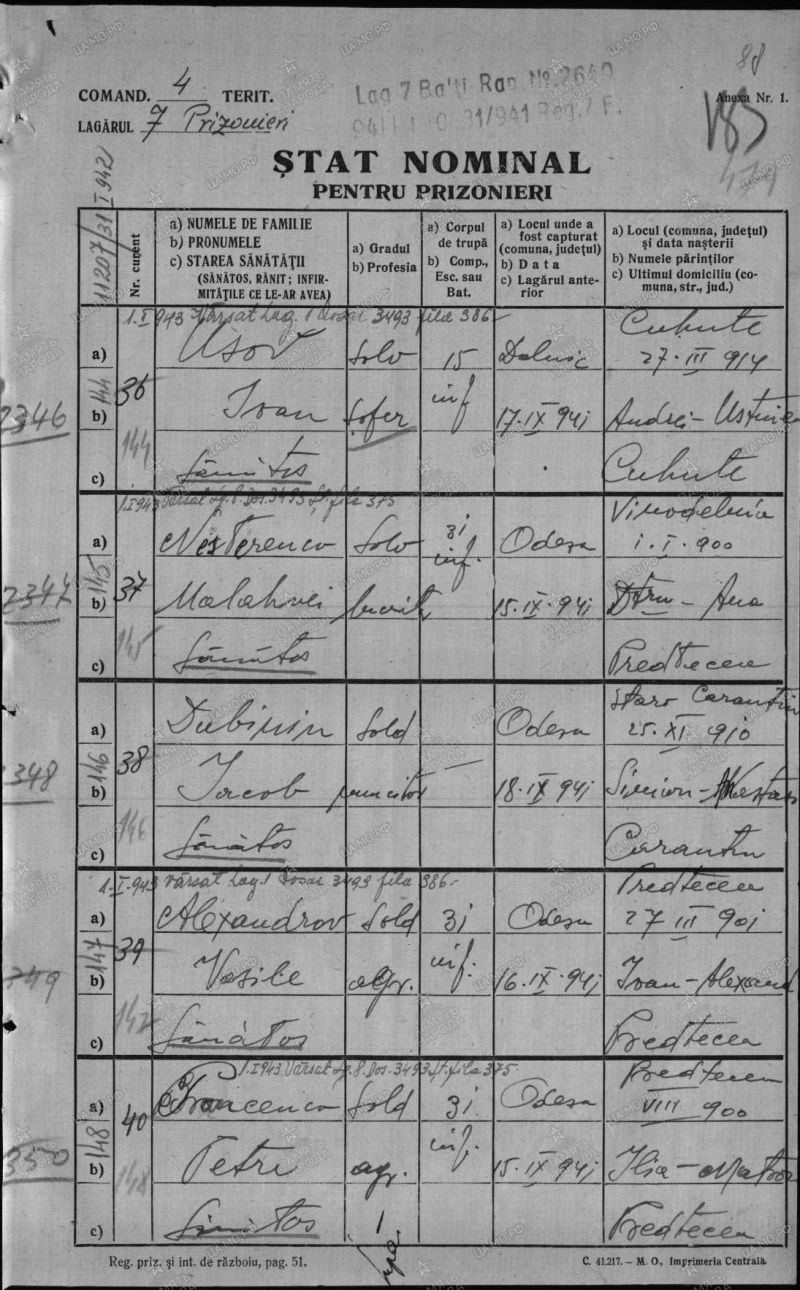 88
COMAND. 4 TERIT.
Lag 7 Balti Rap No. 2640
Anexa Nr. 1.
LAGĂRUL 7 Prizonieri
185
ȘTAT NOMINAL
PENTRU PRIZONIERI
11207/31 I 942
Nr. curent
a) NUMELE DE FAMILIE
b) PRONUMELE
c) STAREA SĂNĂTĂȚII
(SĂNĂTOS, RĂNIT; INFIR-
MITĂȚILE CE LE-AR AVEA)
a) Gradul
b) Profesia
a) Corpul
de trupă
b) Comp.,
Esc. sau
Bat.
a) Locul unde a
fost capturat
(comuna, județul)
b) Data
c) Lagărul ante-
rior
a) Locul (comuna, județul)
și data nașterii
b) Numele părinților
c) Ultimul domiciliu (co-
muna, str., jud.)
1.I 943 Vărsat Lag. 1 Dosar 3493 fila 386
a) Usov Sold 15 Dalnic Cuhute 27.III 914
2346 144 36 b) Ivan Șofer inf 17.IX 941 Andrei-
144 c) Sănătos Cuhute
1.I 943 Vărsat Lg. 8. Dos. 3493 fila 375
a) Nesterenco Sold 31 inf. Odesa Vinodelnia 1.I.900
2347 145 37 b) Malahvei 15.IX.941 Dtru - Ana
145 c) Sănătos Predtecea
a) Dubinin Sold Odesa Staro Carantin 25.XI 910
348 146 38 b) Iacob muncitor — 18.IX 941 Simion-
146 c) Sănătos Carantin
1.I.943 Vărsat Lag. 1 Dosar 3493 fila 386
a) Alexandrov Sold 31 Odesa Predtecea 27 III 901
349 147 39 b) Vasile agr. inf. 16.IX.941 Ivan-Alexand
147 c) Sănătos Predtecea
1.I 943 Vărsat Lg. 8. Dos. 3493 fila 375
a) Sold 31 Odesa Predtecea VIII 900
350 148 40 b) Petre agr. inf. 15.IX 941 Ilia-
148 c) Sănătos Predtecea
Reg. priz. și int. de războiu, pag. 51.
C. 41.217. – M. O., Imprimeria Centrală